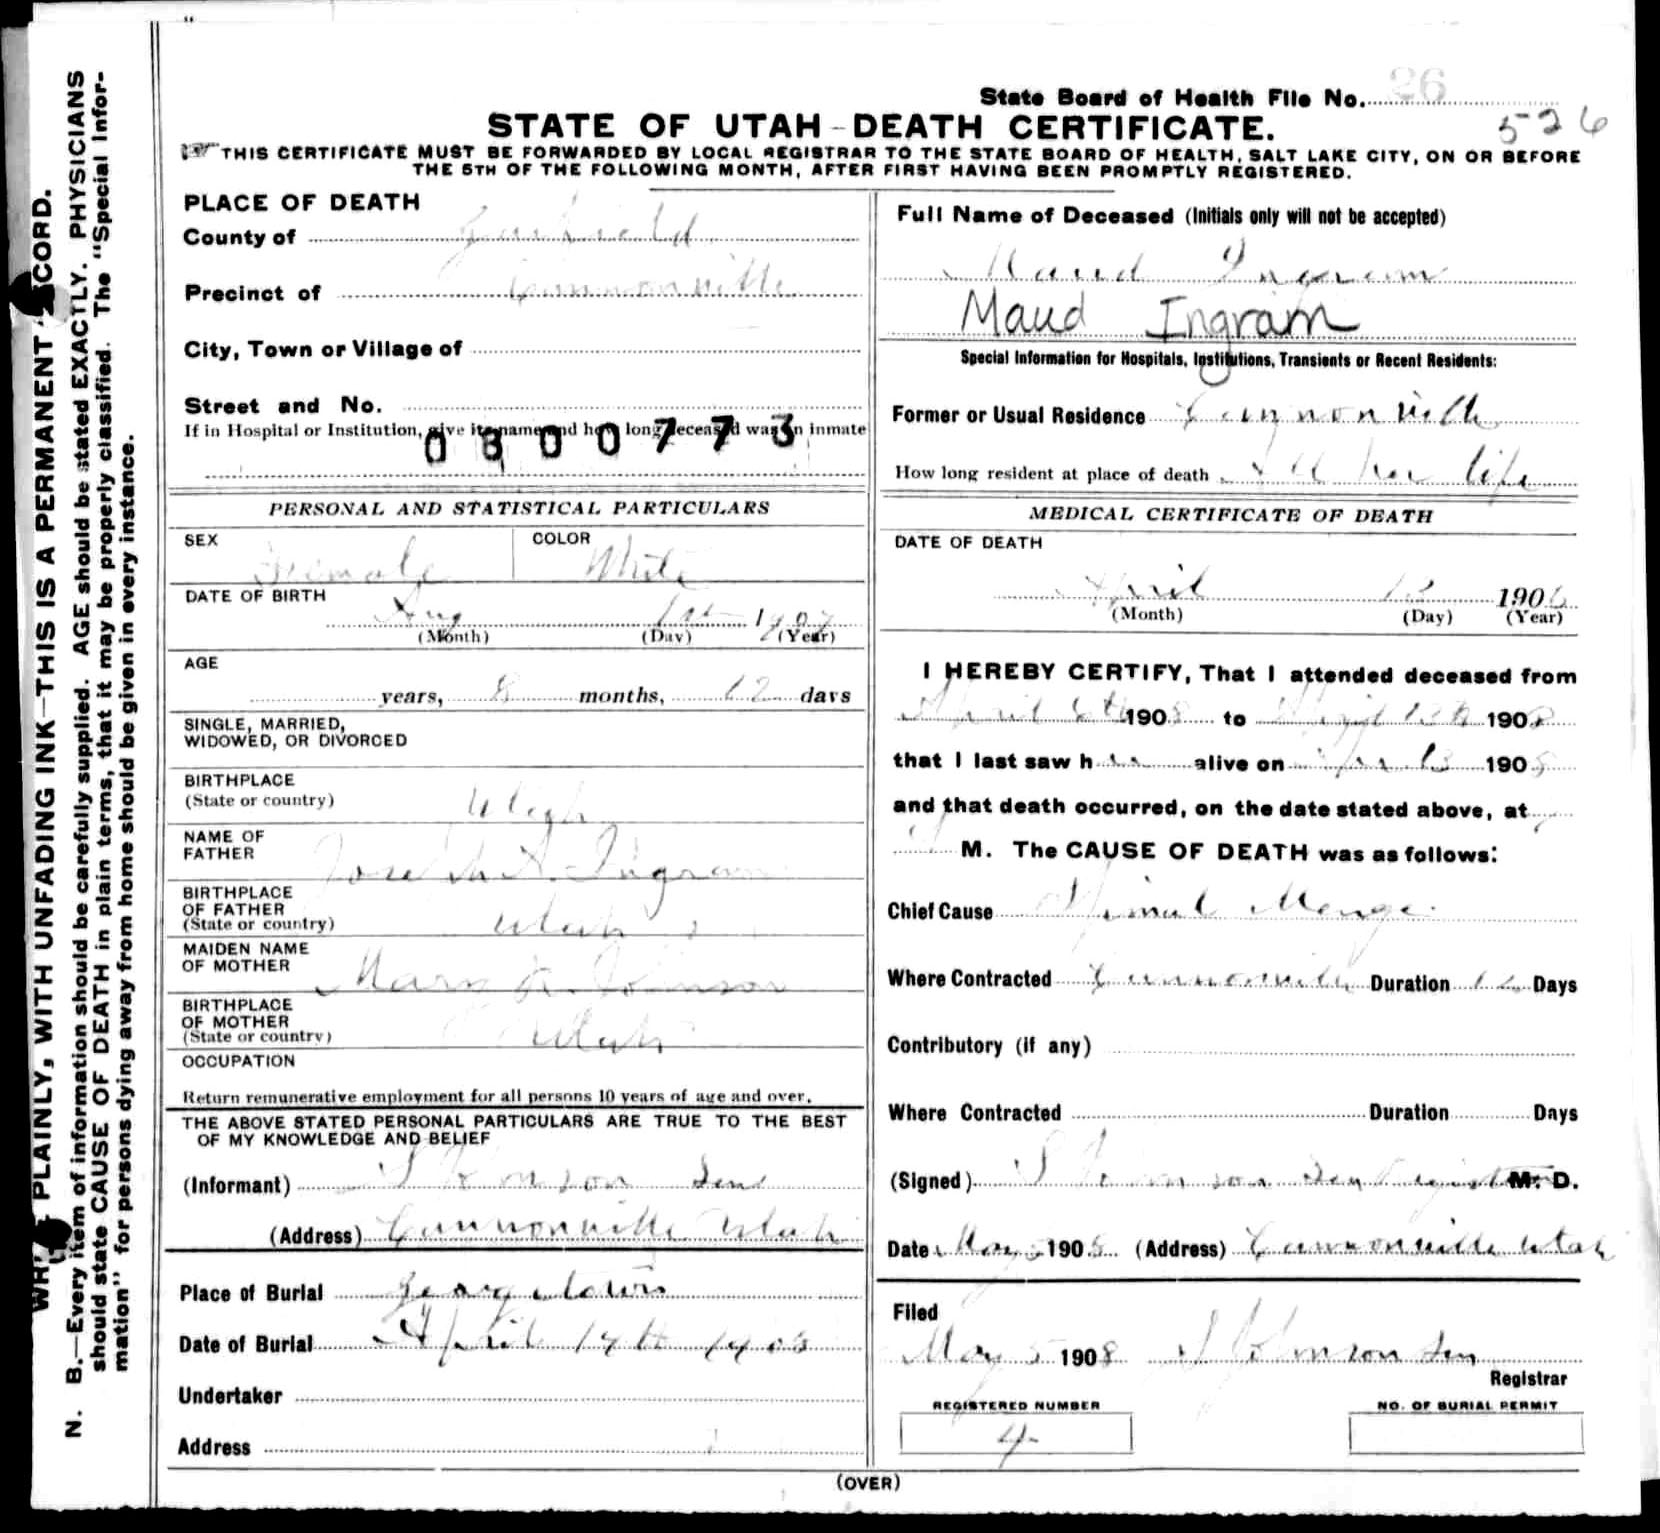 State Board of Health File No. 26
526
STATE OF UTAH - DEATH CERTIFICATE.
THIS CERTIFICATE MUST BE FORWARDED BY LOCAL REGISTRAR TO THE STATE BOARD OF HEALTH, SALT LAKE CITY, ON OR BEFORE
THE 5TH OF THE FOLLOWING MONTH, AFTER FIRST HAVING BEEN PROMPTLY REGISTERED.
PLAINLY, WITH UNFADING INK—THIS IS A PERMANENT
N. B.—Every item of information should be carefully supplied. AGE should be stated EXACTLY. PHYSICIANS
should state CAUSE OF DEATH in plain terms, that it may be properly classified. The "Special Infor-
mation" for persons dying away from home should be given in every instance.
PLACE OF DEATH
County of Garfield
Precinct of Cannonville
City, Town or Village of
Street and No.
If in Hospital or Institution, give its name and how long deceased was an inmate
0800773
PERSONAL AND STATISTICAL PARTICULARS
SEX Female COLOR White
DATE OF BIRTH
Aug 1st 1907
(Month) (Day) (Year)
AGE
years, 8 months, 12 days
SINGLE, MARRIED,
WIDOWED, OR DIVORCED
BIRTHPLACE
(State or country) Utah
NAME OF
FATHER Joseph A. Ingram
BIRTHPLACE
OF FATHER
(State or country) Utah
MAIDEN NAME
OF MOTHER Mary Johnson
BIRTHPLACE
OF MOTHER
(State or country) Utah
OCCUPATION
Return remunerative employment for all persons 10 years of age and over.
THE ABOVE STATED PERSONAL PARTICULARS ARE TRUE TO THE BEST
OF MY KNOWLEDGE AND BELIEF
(Informant) S Johnson Sen
(Address) Cannonville Utah
Place of Burial Georgetown
Date of Burial April 14th 1908
Undertaker
Address
Full Name of Deceased (Initials only will not be accepted)
Maud Ingram
Maud Ingram
Special Information for Hospitals, Institutions, Transients or Recent Residents:
Former or Usual Residence Cannonville
How long resident at place of death All her life
MEDICAL CERTIFICATE OF DEATH
DATE OF DEATH
April 13 190
(Month) (Day) (Year)
I HEREBY CERTIFY, That I attended deceased from
April 6th 1908 to 13th 1908
that I last saw her alive on 13 1908
and that death occurred, on the date stated above, at
M. The CAUSE OF DEATH was as follows:
Chief Cause Spinal Menge
Where Contracted Cannonville Duration 12 Days
Contributory (if any)
Where Contracted Duration Days
(Signed) S Johnson Sen Registrar M. D.
Date May 5 1908 (Address) Cannonville Utah
Filed
May 5 1908 S Johnson Sen
Registrar
REGISTERED NUMBER
4
NO. OF BURIAL PERMIT
(OVER)